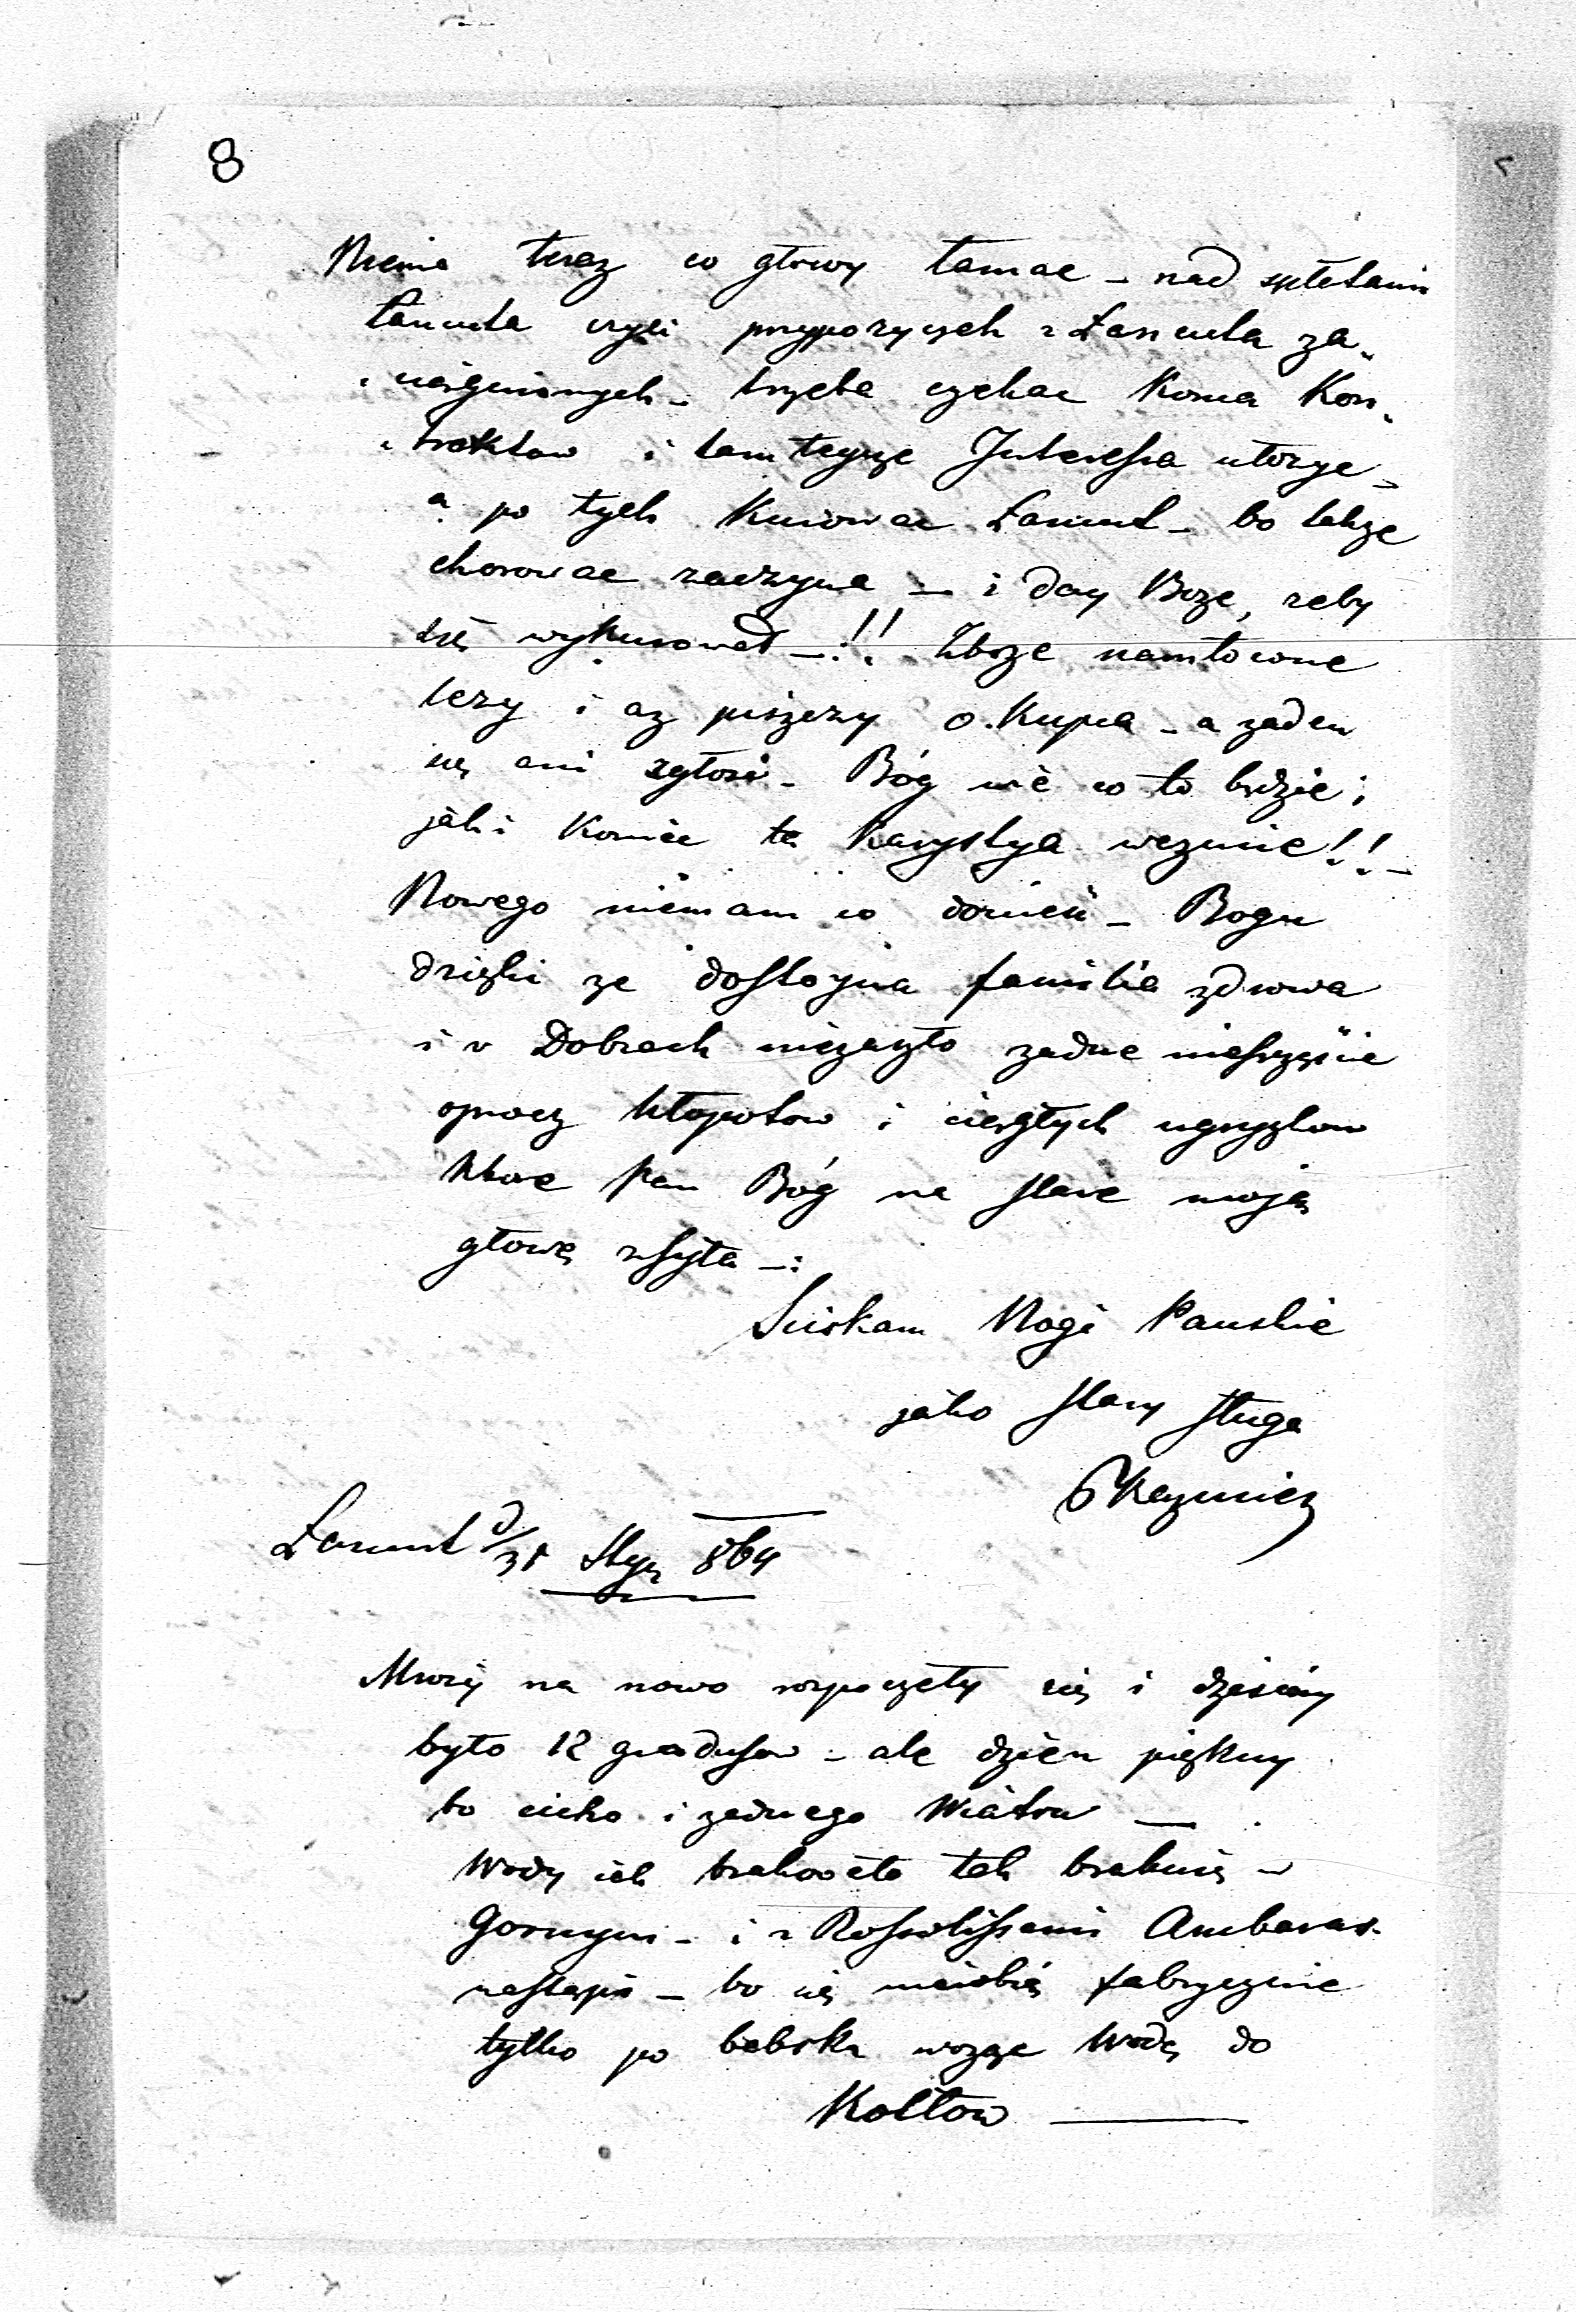 8
Niema teraz co głowy łamac - nad spłetami
Łancuta czyli przypozyczek z Łancuta za„
„ciągnionych - trzeba czekac Konca Kon„
„traktow i tamteysze Interessa utozyc,
a po tych Kurowac Łancut - bo takze
chorowac zaczyna — i day Boze, zeby
się wykurował —!! Zboze namłocone
lezy i az piszczy o Kupca - a zaden
się ani zgłosi - Bóg wie co to bedzie i
jaki Koniec ta Karystya wezmie!! -
Nowego niemam co doniesć - Bogu
dzięki ze dostoyna familia zdrowa
i w Dobrach niezaszło zadne niesczęście
oprocz kłopotow i ciągłych ugryzkow
ktore Pan Bóg na stare moją
głowę zsyła —:
Sciskam Nogi Panskie
jako stary sługa
Łancut d/31 Sty 864
Mrozy na nowo rozpoczeły się i dzisiay
było 12 gradusow - ale dzien piękny
bo cicho i zadnego Wiatru —
Wody jak brakowało tak brakuie w
Gornym - i z Rossolissami Ambaras
nastąpi - bo się nierobią fabrycznie
tylko po babsku woząc Wodę do
Kotłow —